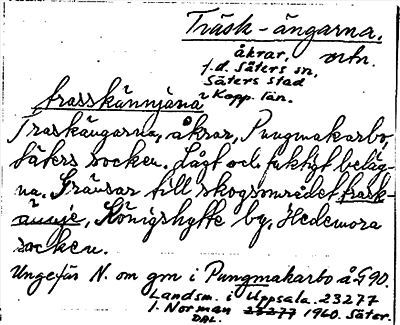 Träsk-ängarna,
åkrar, ortn.
f.d. Säters sn,
Säters stad
i Kopp. län.
Träskängarna, åkrar, Pungmakarbo,
Säters socken. Lågt och fuktigt beläg-
na. Gränsar till skogsområdet
Königshytte by, Hedemora
socken.
Ungefär N. om gm i Pungmakarbo å
Landsm. i Uppsala. 23277
I. Norman 23277 1960. Säter.
DAL.